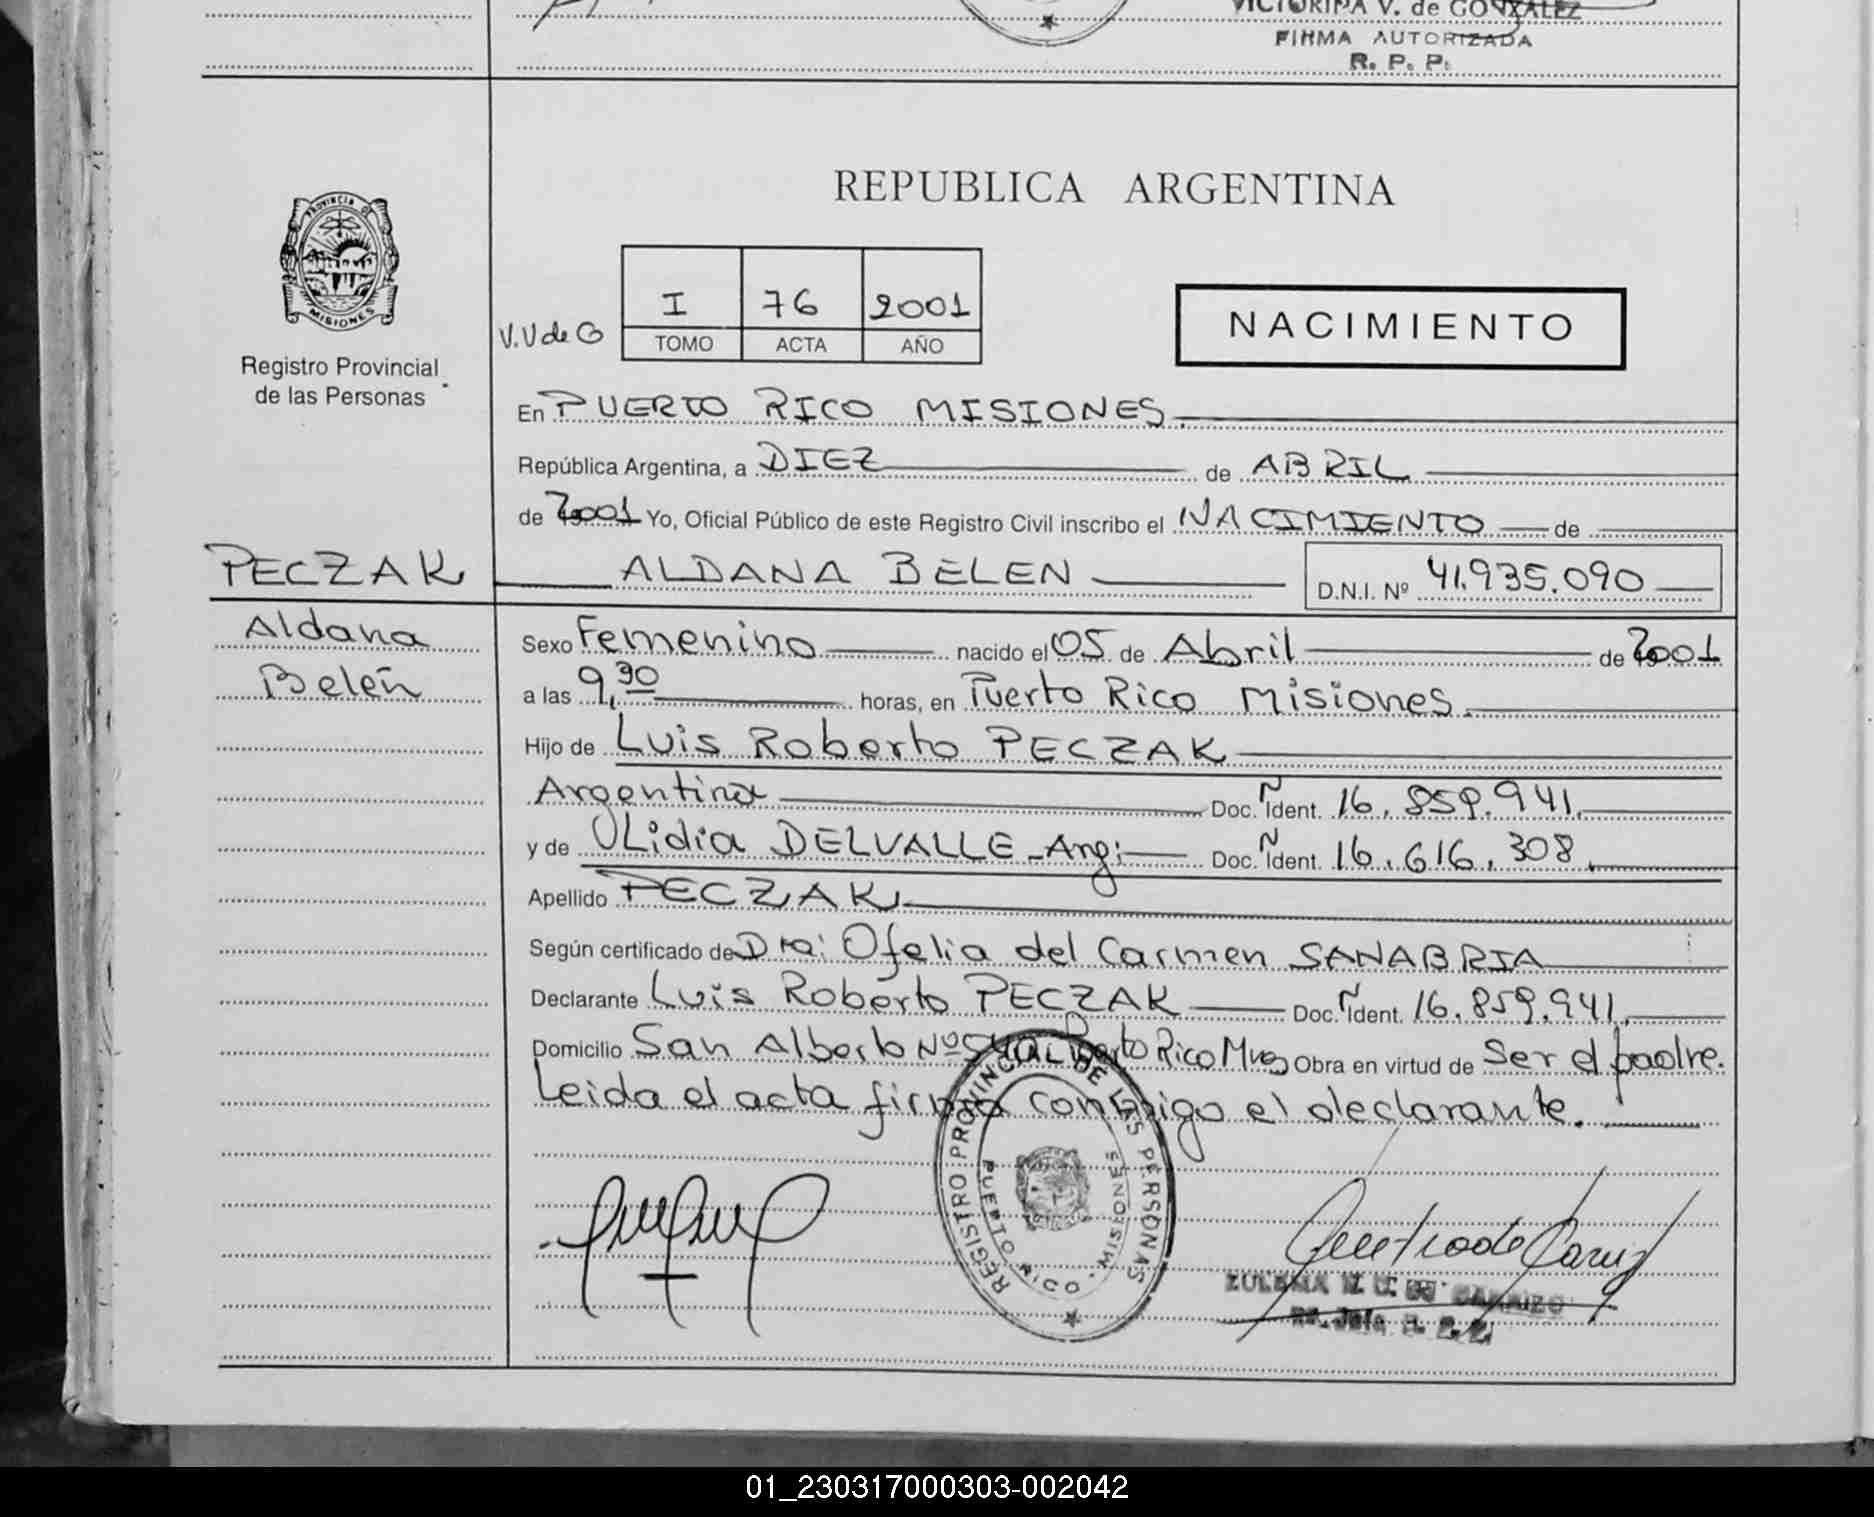 VICTORINA V. de GONZALEZ
FIRMA AUTORIZADA
R. P. P.
PROVINCIA DE
MISIONES
Registro Provincial
de las Personas
REPUBLICA ARGENTINA
V.V de G
I 76 2001
TOMO ACTA AÑO
NACIMIENTO
En PUERTO RICO MISIONES.
República Argentina, a DIEZ de ABRIL
de 2001 Yo, Oficial Público de este Registro Civil inscribo el NACIMIENTO de
PECZAK ALDANA BELEN D.N.I. Nº 41.935.090
Aldana
Belén
Sexo Femenino nacido el 05 de Abril de 2001
a las 9,30 horas, en Puerto Rico Misiones.
Hijo de Luis Roberto PECZAK
Argentina Doc. Ident. 16.859.941.
y de Lidia DELVALLE - Arg: Doc. Ident. 16.616.308.
Apellido PECZAK
Según certificado de Dra: Ofelia del Carmen SANABRIA
Declarante Luis Roberto PECZAK Doc. Ident. 16.859.941.
Domicilio San Alberto Nº Puerto Rico Mnes Obra en virtud de Ser el padre.
Leida el acta firma conmigo el declarante.
REGISTRO PROVINCIAL DE LAS PERSONAS
PUERTO RICO - MISIONES
ZULEMA
01_230317000303-002042